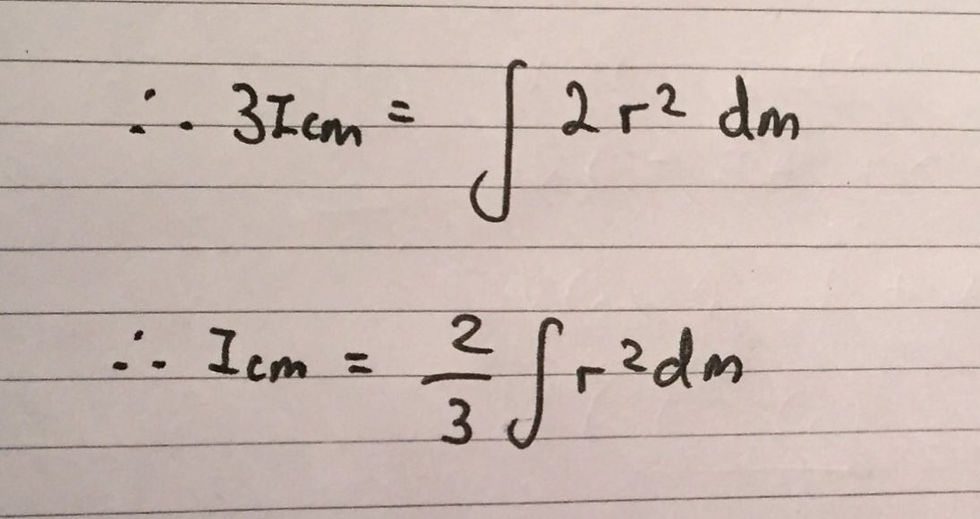 ∴ 3Icm = ∫ 2 r² dm
∴ Icm = 2/3 ∫ r² dm